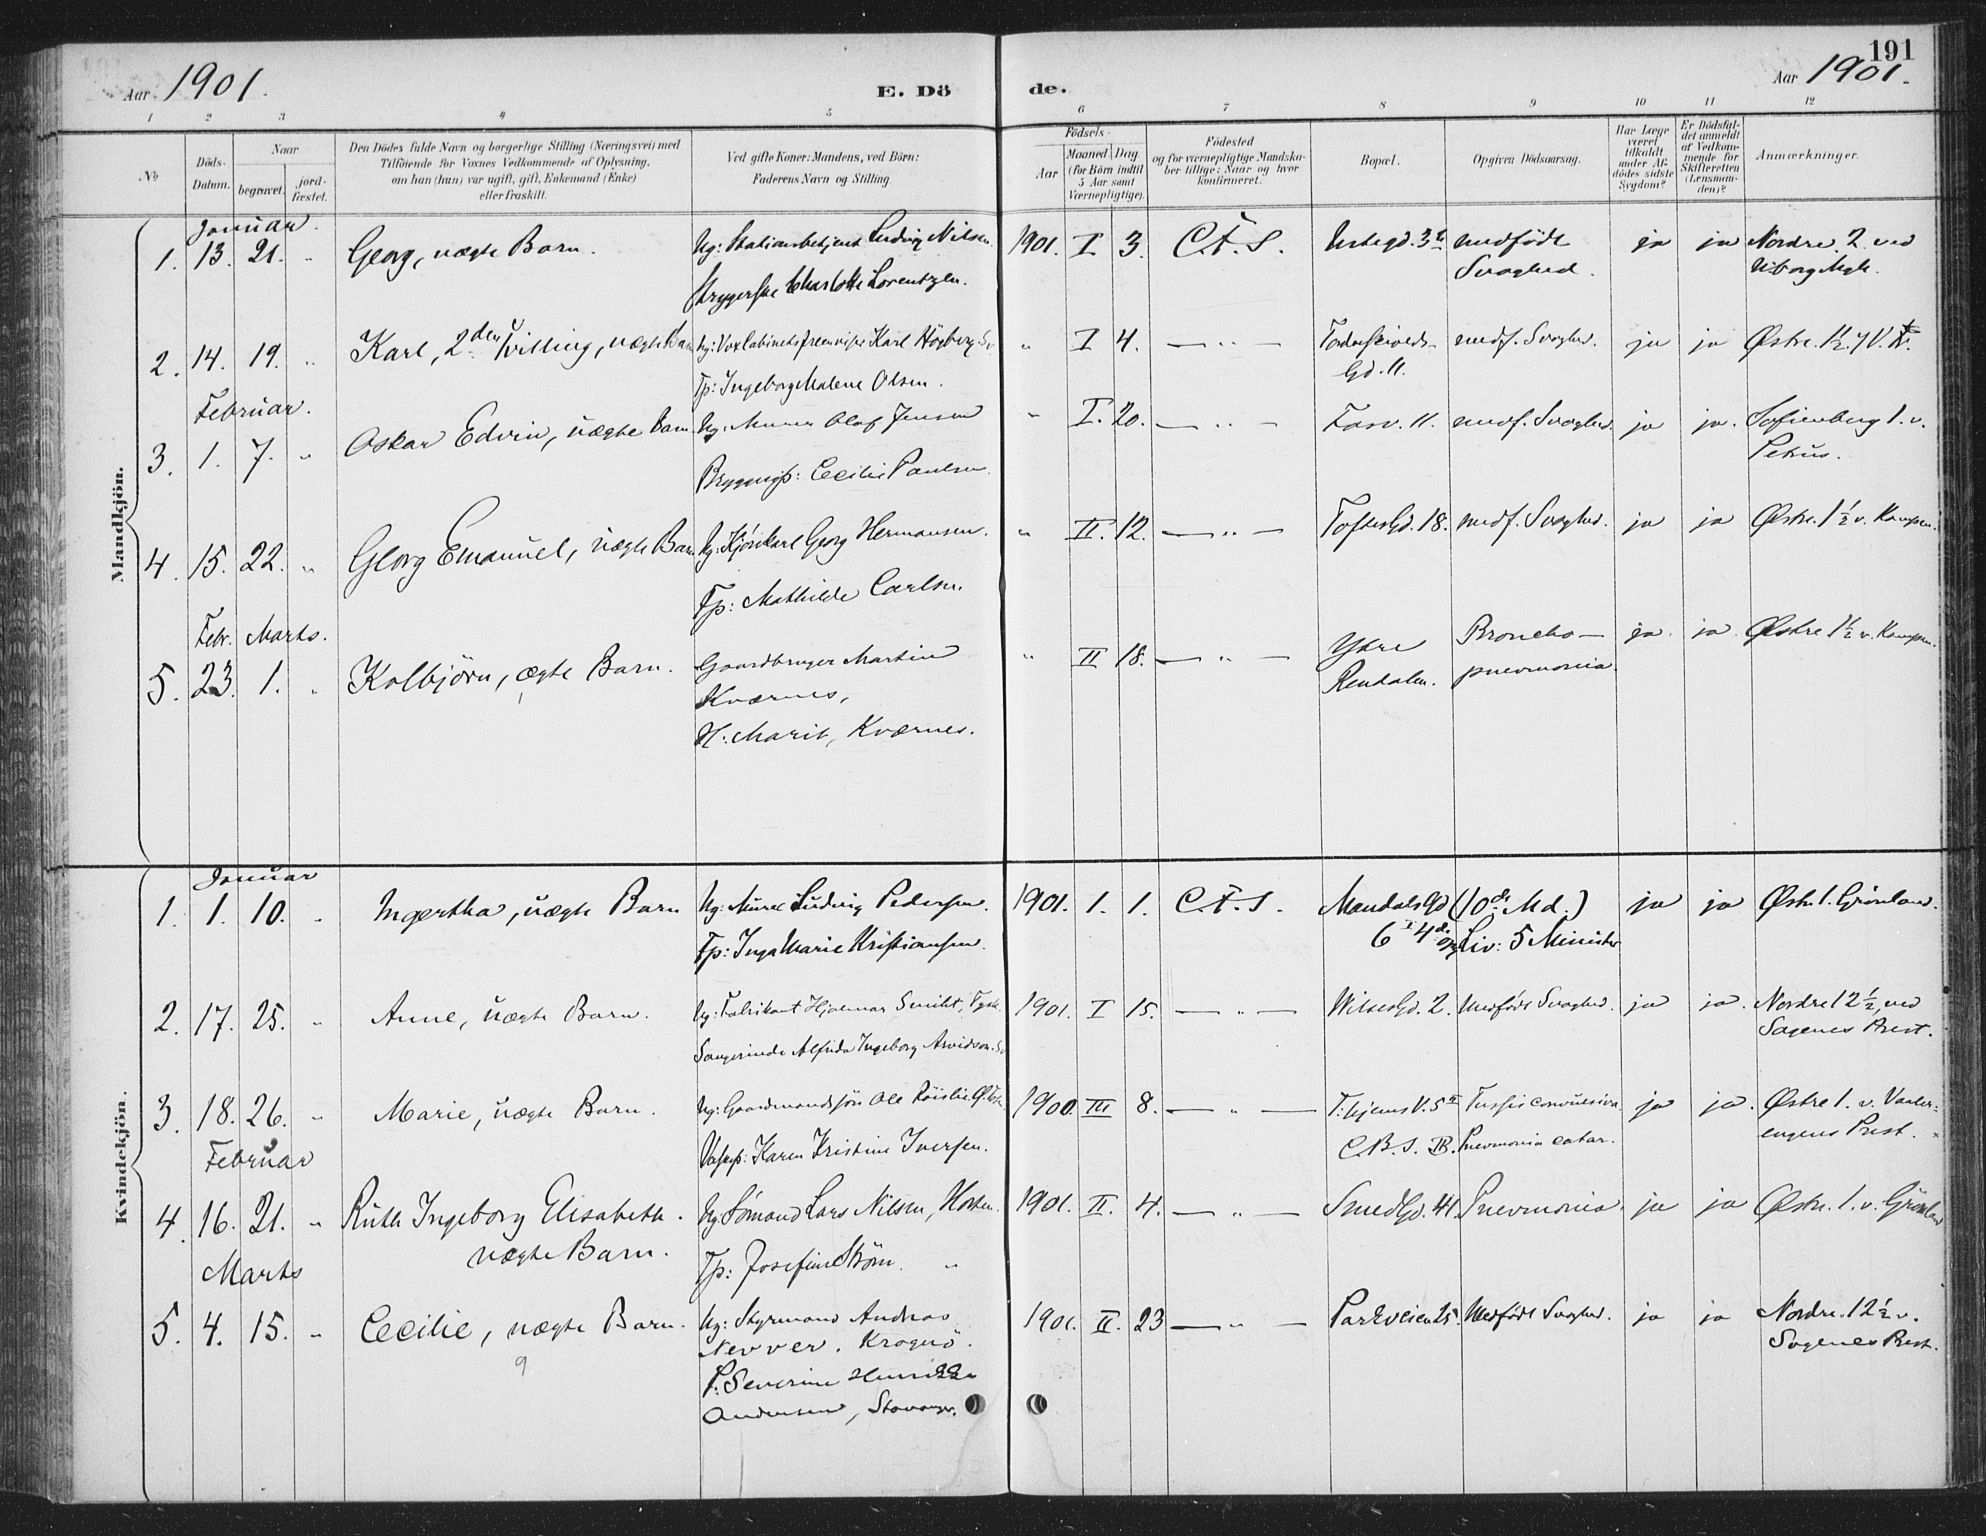 191
Aar 1901.
E. Dö de.
Aar 1901.
1 2 3 4 5 6 7 8 9 10 11 12
No
Döds-
Datum.
Naar
begravet.
jord-
fæstet.
Den Dödes fulde Navn og borgerlige Stilling (Næringsvei) med
Tilföiende for Voxnes Vedkommende af Oplysning,
om han (hun) var ugift, gift, Enkemand (Enke)
eller fraskilt.
Ved gifte Koner: Mandens, ved Börn:
Faderens Navn og Stilling
Födsels-
Aar
Maaned Dag
(for Börn indtil
5 Aar samt
Værnepligtige).
Födested
og for værnepligtige Mandska-
ber tillige: Naar og hvor
konfirmeret.
Bopæl.
Opgiven Dödsaarsag.
Har Læge
været
tilkaldt
under Af-
dödes sidste
Sygdom?
Er Dödsfal-
det anmeldt
af Vedkom-
mende for
Skifteretten
(Lensman-
den)?
Anmærkninger.
Mandkjön.
Januar.
1. 13. 21. " Georg, uægte Barn. Ug: Stationsbetjent Ludvig Nilsen 1901. I 3. C.F.S. 3 medfödt ja ja Nordre 2 ved
Strygerske Charlotte Lorentzen. Svaghed.
2. 14. 19. " Karl, 2den Tvilling, uægte Barn Karl Högberg " I 4. — " — medf. Svaghed. ja ja Østre. 1½
Tp: Ingeborg Malene Olsen. Gd. 11.
Februar.
3. 1. 7. " Oskar Edvin, uægte Barn Ug. Murer Olaf Jensen " I. 20. — " — 11. medf. Svaghed. ja ja. Sofienberg 1. v.
Cecilie Paulsen. Petrus.
4. 15. 22. " Georg Emanuel, uægte Barn Ug. Kjörekarl Georg Hermansen. " II. 12. — " — Toftes Gd. 18. medf. Svaghed. ja ja Østre. 1½ v. Kampen.
Tp: Mathilde Carlsen.
Febr. Marts.
5. 23. 1. " Kolbjörn, ægte Barn. Gaardbruger Martin " II 18. — " — Ytre Broncho- ja. ja. Østre 1½ v. Kampen.
Kværnes, Rendalen. pneumonia.
H: Marit, Kværnes.
Kvindekjön.
Januar
1. 1. 10. " Ingertha, uægte Barn Ug: Murer Ludvig Pedersen. 1901. 1. 1. C.F.S. Mandals Gd (10de Md.) ja ja Østre 1. Grönland.
Tp: Inga Marie Kristiansen. 6 Liv: 5 Minuter
2. 17. 25. " Anne, uægte Barn. Ug: Fabrikant Hjalmar Smiht, Tysk. 1901. I 15. — " — Wilses Gd. 2. Medfödt Svaghed. ja ja. Nordre 12½, ved
Sangerinde Alfrida Ingeborg Arvidson. Sv Sagenes Prest.
3. 18. 26. " Marie, uægte Barn. Ug: Gaardmandssön Ole 1900. III 8. — " — T.hjems V. 5 Tussis convulsiva ja ja. Østre 1. v. Vaaler-
Karen Kristine Iversen. C.B.S. Pneumonia catar. engens Prest.
Februar
4. 16. 21. " Ruth Ingeborg Elisabeth. Ug. Sömand Lars Nilsen, Horten. 1901. II. 4. — " — Smed Gd. 41. Pneumonia. ja ja Østre. 1. v. Grönland
uægte Barn. Tp: Josefine Ström. "
Marts
5. 4. 15. " Cecilie, uægte Barn. Ug: Styrmand Andreas 1901. II. 23 — " — Parkveien 25. Medfödt Svaghed. ja ja Nordre. 12½ v.
Nevver. Kragerö. Sagenes Prest.
P: Severine
Andersen, Stavanger.